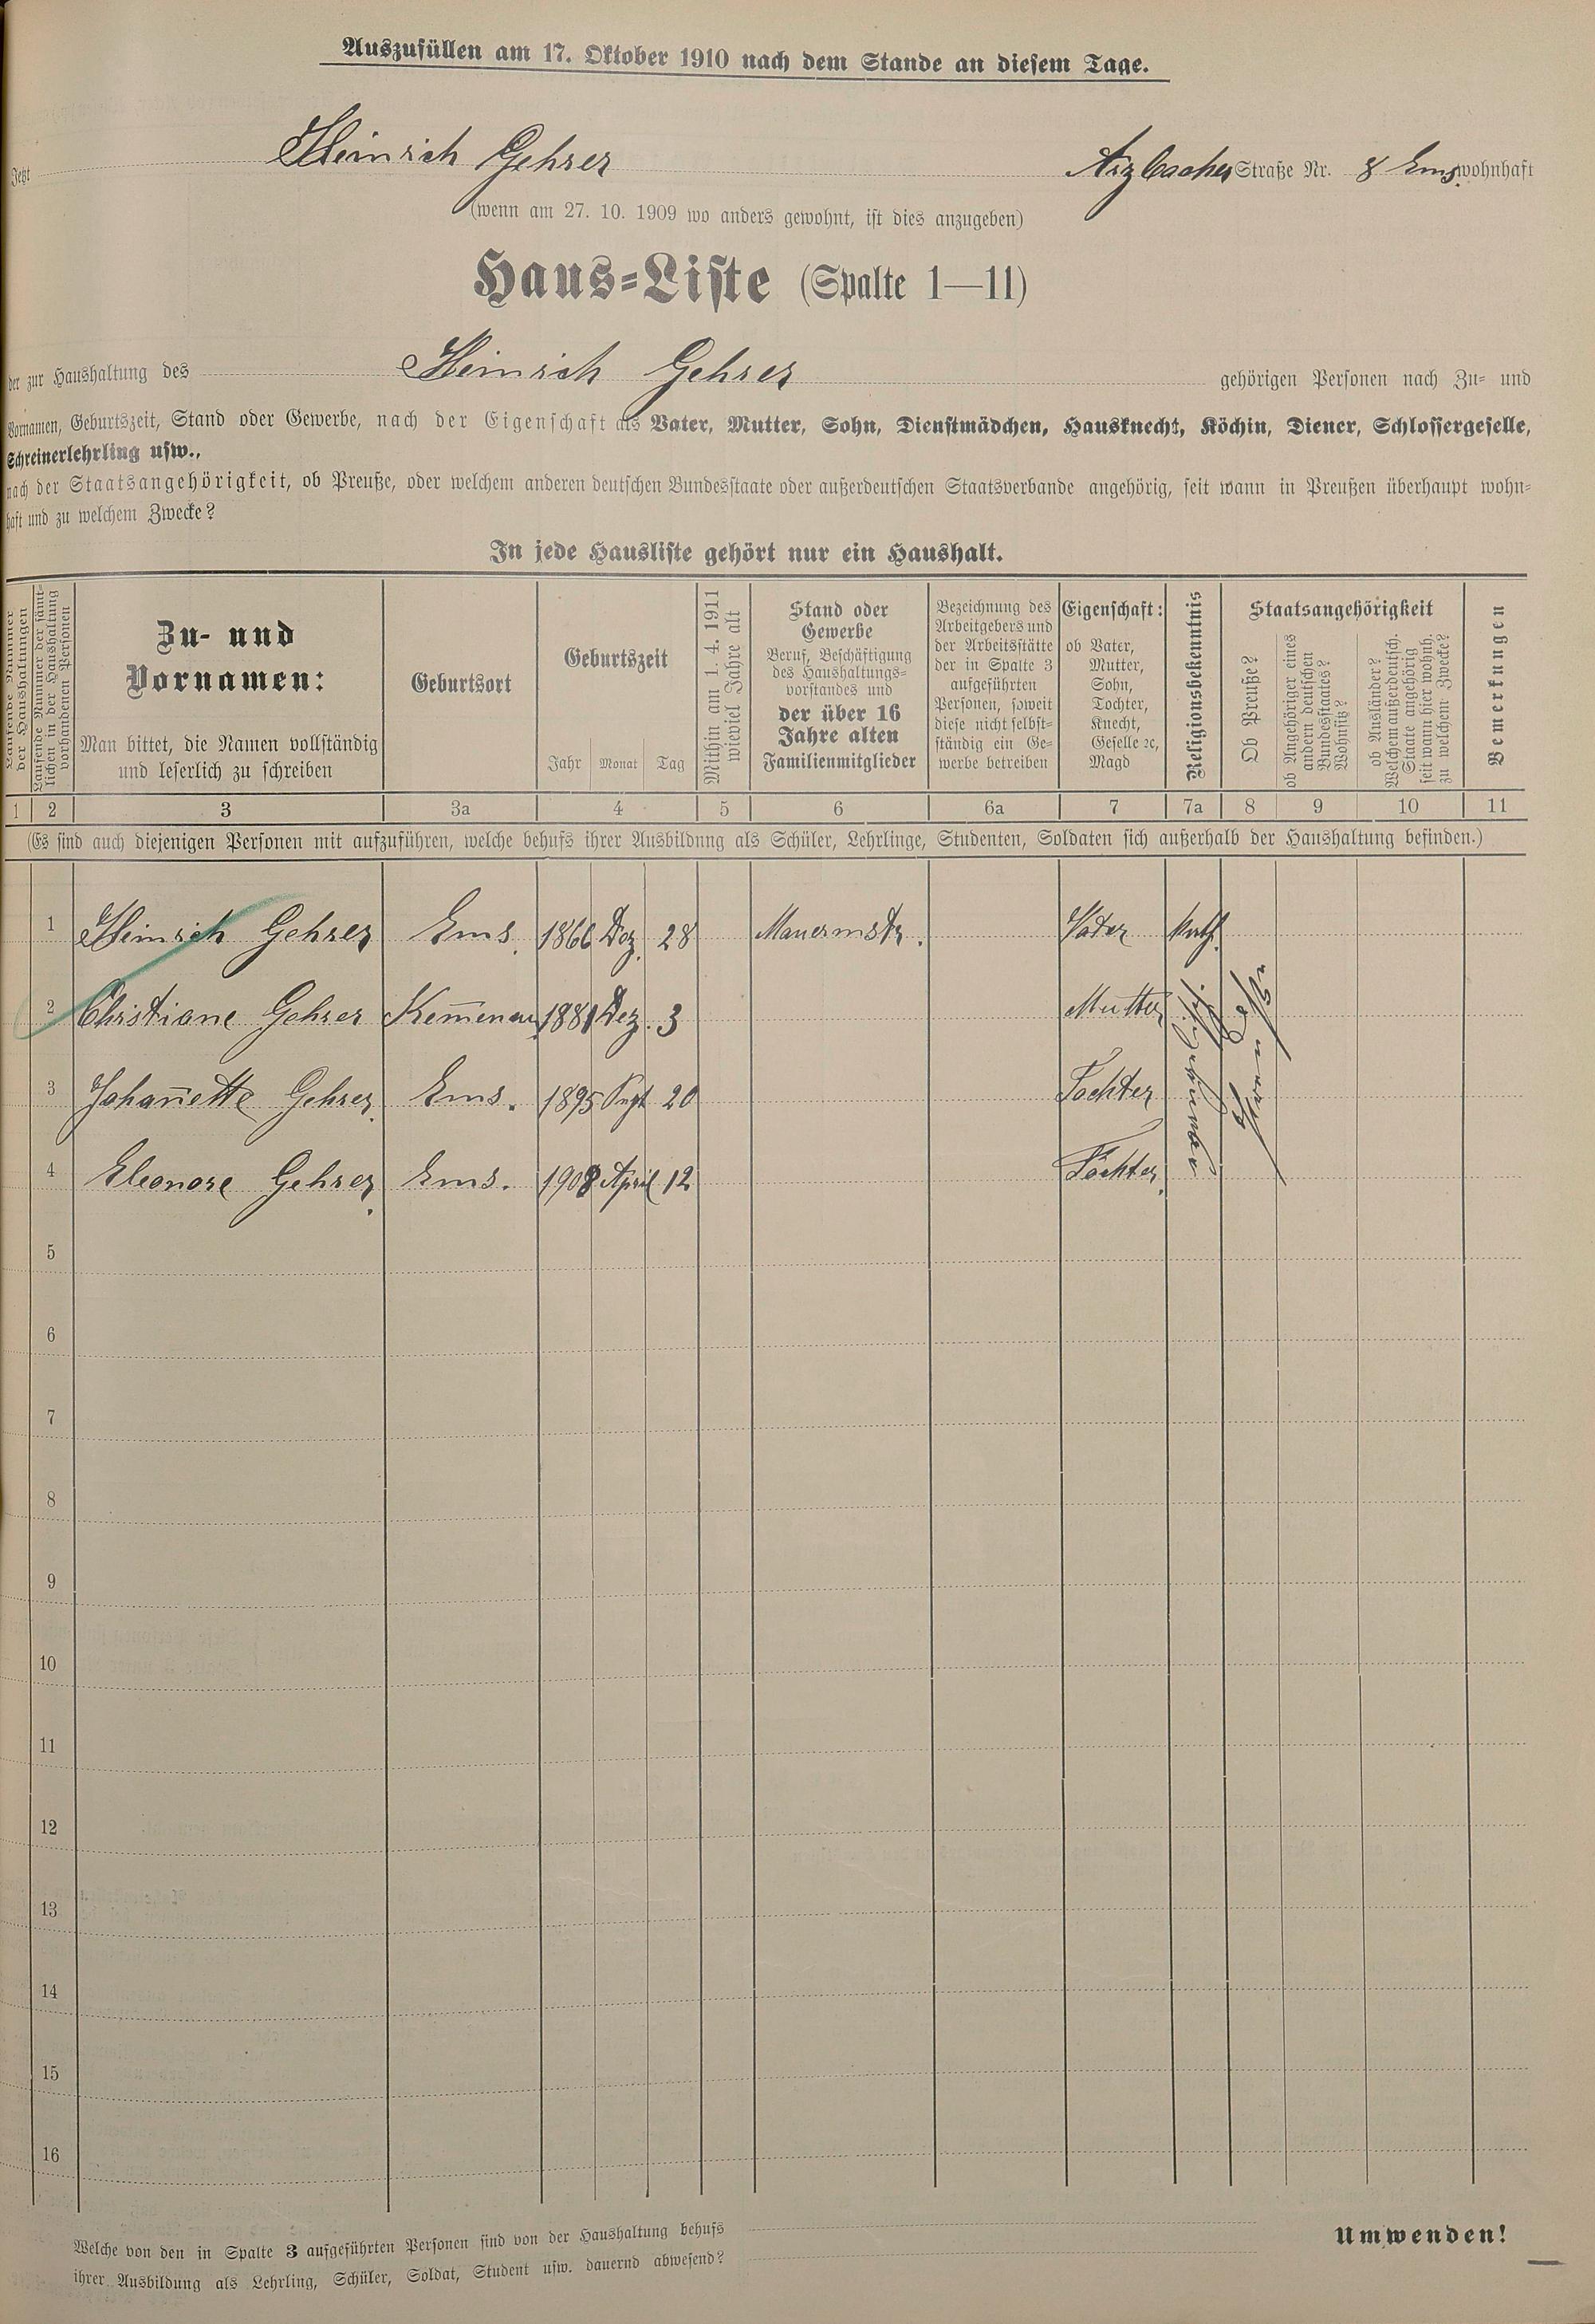 Auszufüllen am 17. Oktober 1910 nach dem Stande an diesem Tage.
Jetzt Heinrich Gehrer Arzbacher Straße Nr. 8 Ems. wohnhaft
(wenn am 27. 10. 1909 wo anders gewohnt, ist dies anzugeben)
Haus-Liste (Spalte 1—11)
der zur Haushaltung des Heinrich Gehrer gehörigen Personen nach Zu- und
Vornamen, Geburtszeit, Stand oder Gewerbe, nach der Eigenschaft als Vater, Mutter, Sohn, Dienstmädchen, Hausknecht, Köchin, Diener, Schlossergeselle,
Schreinerlehrling usw.,
nach der Staatsangehörigkeit, ob Preuße, oder welchem anderen deutschen Bundesstaate oder außerdeutschen Staatsverbande angehörig, seit wann in Preußen überhaupt wohn-
haft und zu welchem Zwecke?
In jede Hausliste gehört nur ein Haushalt.
Laufende Nummer
der Haushaltungen
Laufende Nummer der sämt-
lichen in der Haushaltung
vorhandenen Personen
Zu- und
Vornamen:
Man bittet, die Namen vollständig
und leserlich zu schreiben
Geburtsort
Geburtszeit
Jahr Monat Tag
Mithin am 1. 4. 1911
wieviel Jahre alt
Stand oder
Gewerbe
Beruf, Beschäftigung
des Haushaltungs-
vorstandes und
der über 16
Jahre alten
Familienmitglieder
Bezeichnung des
Arbeitgebers und
der Arbeitsstätte
der in Spalte 3
aufgeführten
Personen, soweit
diese nicht selbst-
ständig ein Ge-
werbe betreiben
Eigenschaft:
ob Vater,
Mutter,
Sohn,
Tochter,
Knecht,
Geselle ꝛc,
Magd
Religionsbekenntnis
Staatsangehörigkeit
Ob Preuße?
ob Angehöriger eines
andern deutschen
Bundesstaates?
Wohnsitz?
ob Ausländer?
Welchem außerdeutsch.
Staate angehörig
seit wann hier wohnh.
zu welchem Zwecke?
Bemerkungen
1 2 3 3a 4 5 6 6a 7 7a 8 9 10 11
(Es sind auch diejenigen Personen mit aufzuführen, welche behufs ihrer Ausbildung als Schüler, Lehrlinge, Studenten, Soldaten sich außerhalb der Haushaltung befinden.)
1 Heinrich Gehrer Ems. 1866 Dez. 28 Maurermstr. Vater Kath.
2 Christiane Gehrer Kem̅enau 1881 Dez. 3 Mutter
3 Johan̅ette Gehrer Ems. 1895 20 Tochter
4 Eleonore Gehrer Ems. 1908 April 12 Tochter
5
6
7
8
9
10
11
12
13
14
15
16
Welche von den in Spalte 3 aufgeführten Personen sind von der Haushaltung behufs
ihrer Ausbildung als Lehrling, Schüler, Soldat, Student usw. dauernd abwesend?
Umwenden!